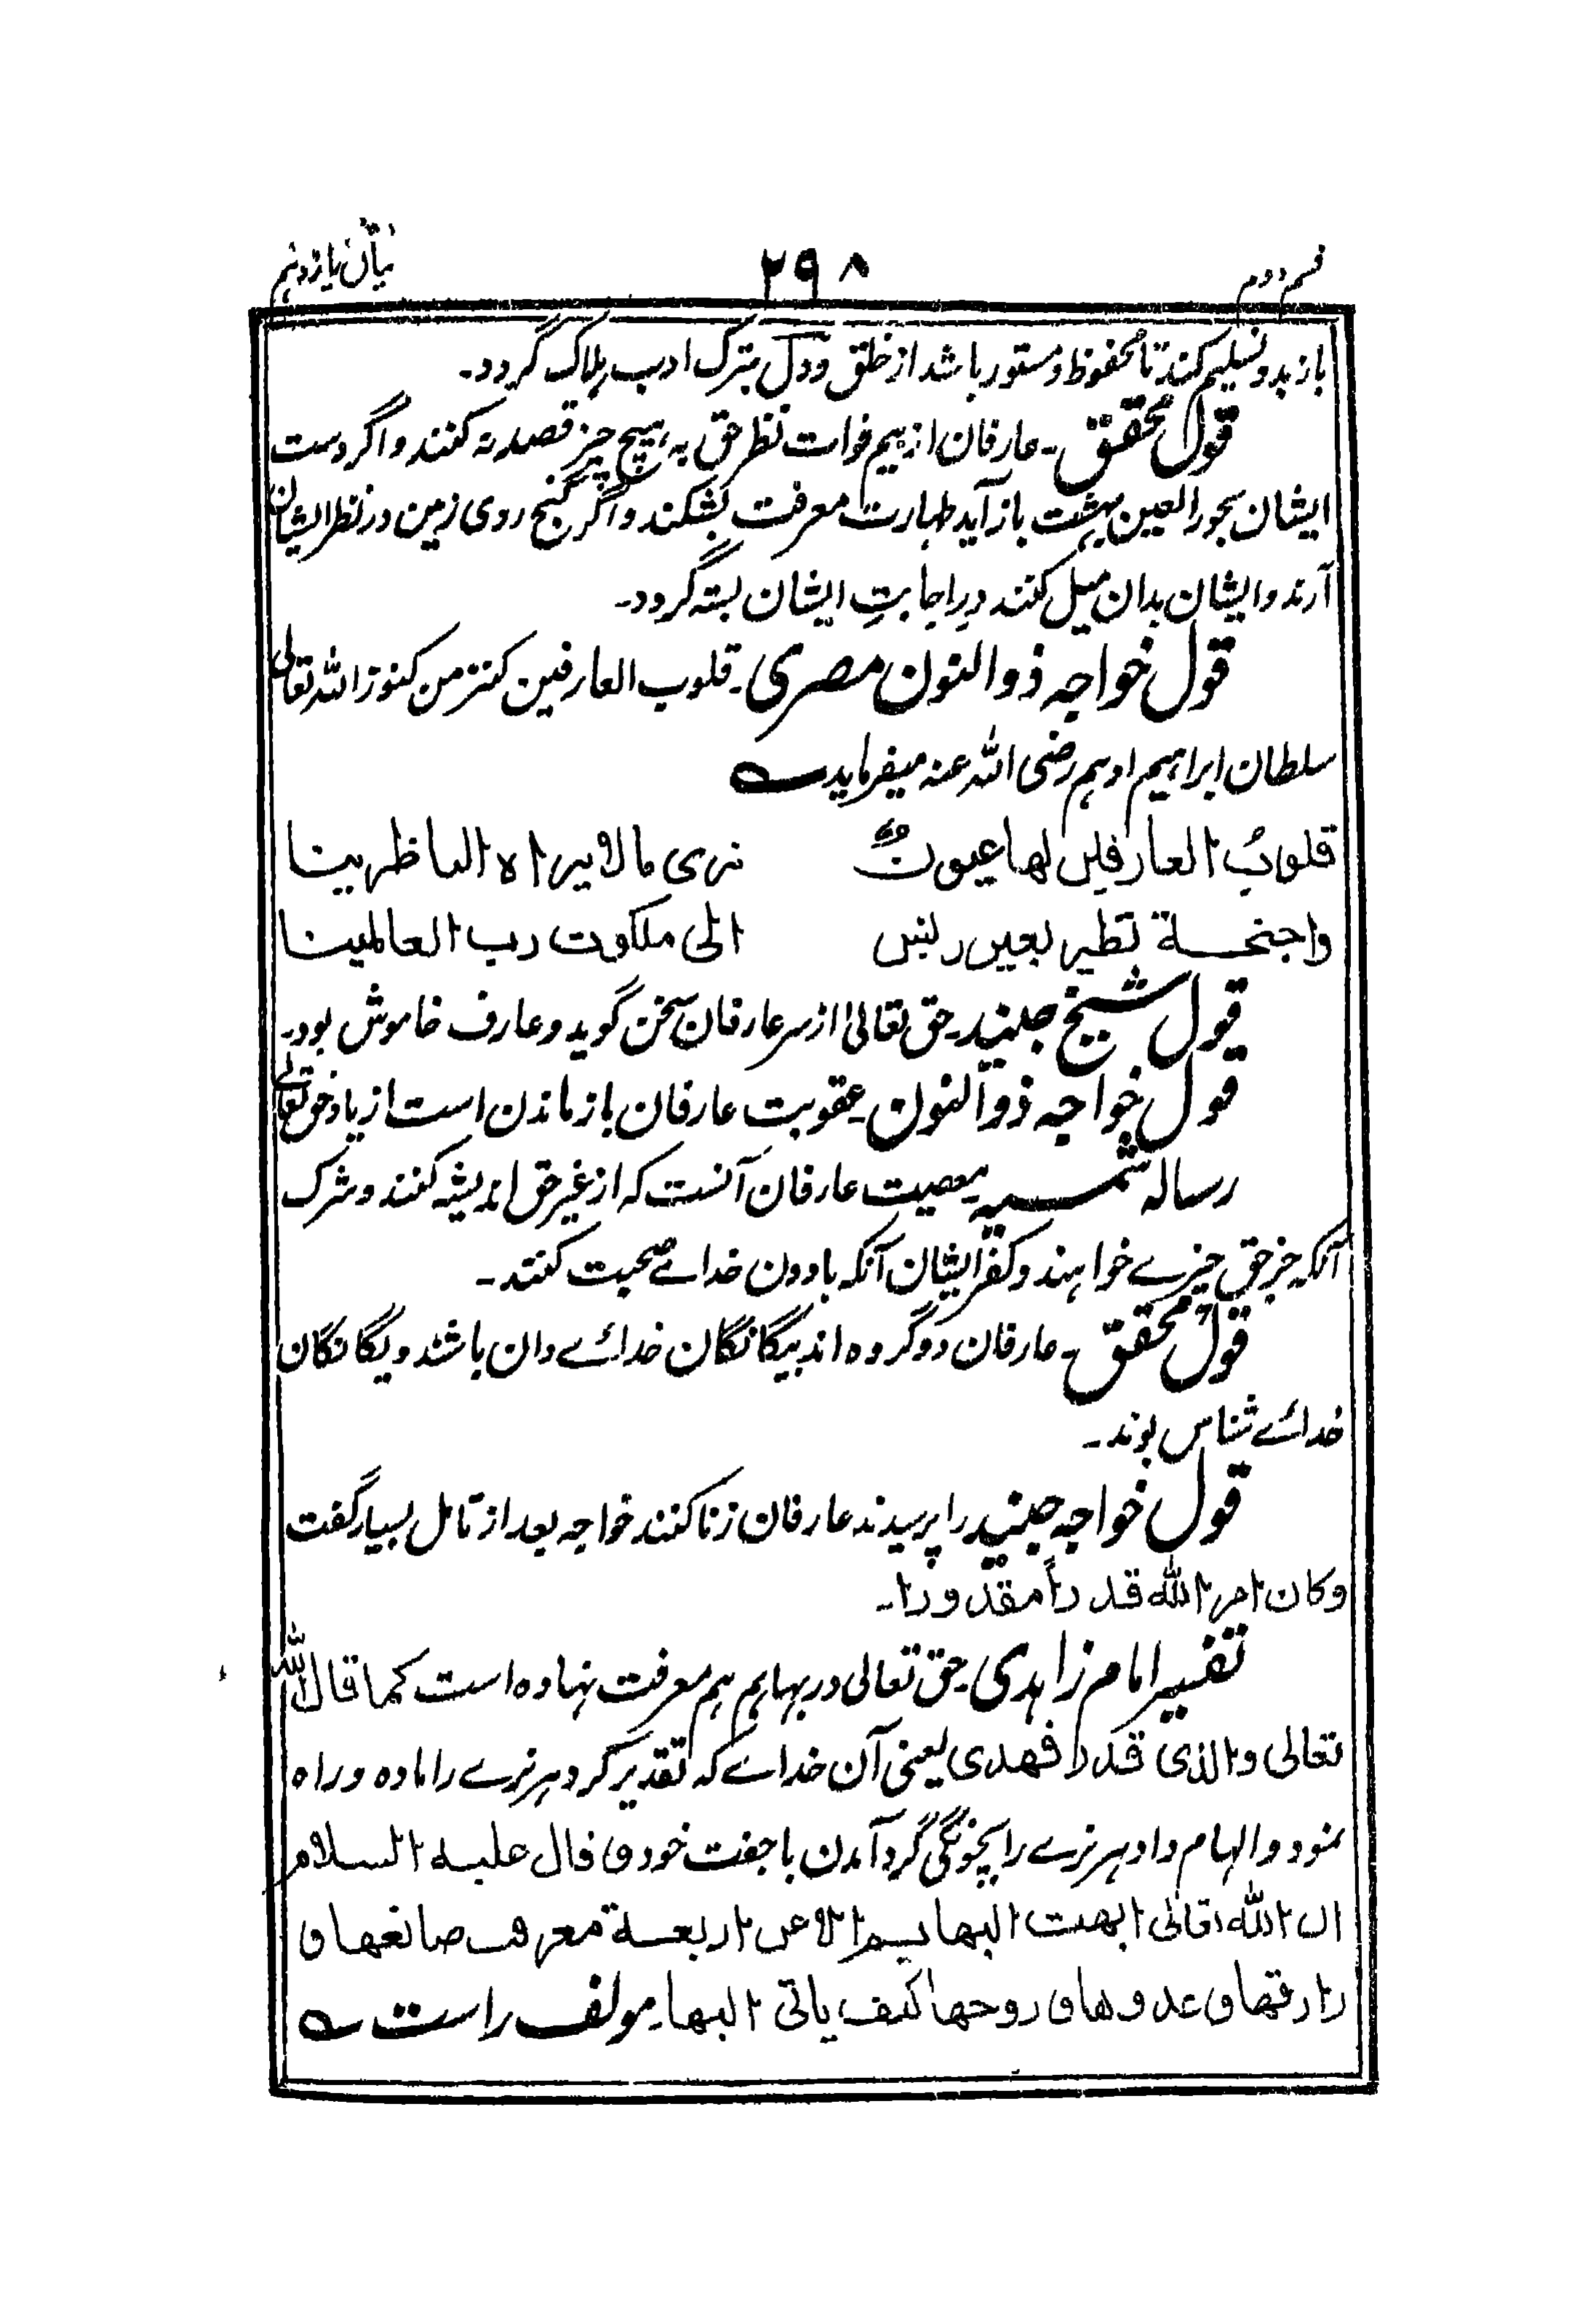 قسم دوم ۲۹۸ بیان یازدہم
باز بدو تسلیم کند تا محفوظ و مستور باشد از خلق و دل بترک ادب ہلاک گردد۔
قول محقق۔ عارفان از بیم فوات نظر حق بہ ہیچ چیز قصد نہ کنند و اگر دست
ایشان بحور العین بہشت باز آید طہارت معرفت بشکند و اگر گنج روی زمین در نظر ایشان
آرند و ایشان بدان میل کنند در اجابتِ ایشان بستہ گردد۔
قول خواجہ ذوالنون مصری۔ قلوب العارفین کنز من کنوز اللہ تعالی
سلطان ابراہیم ادہم رضی اللہ عنہ میفرماید
قلوبُ العارفین لها عیونٌ تری ما لا یراه الناظرینا
واجنحة تطیر بغیر ریش الی ملکوت رب العالمینا
قول شیخ جنید۔ حق تعالیٰ از سر عارفان سخن گوید و عارف خاموش بود۔
قول خواجہ ذوالنون۔ عقوبت عارفان باز ماندن است از یاد حق تعالے
رسالہ شمسیہ۔ معصیت عارفان آنست کہ از غیر حق اندیشہ کنند و شرک
آنکہ جز حق چیزے خواہند و کفر ایشان آنکہ با دون خداے صحبت کنند۔
قول محقق۔ عارفان دو گروہ اند بیگانگان خداے دان باشند و یگانگان
خداے شناس بوند۔
قول خواجہ جنید را پرسیدند عارفان زنا کنند خواجہ بعد از تامل بسیار گفت
وکان امر الله قدراً مقدورا۔
تفسیر امام زاہدی۔ حق تعالی در بہایم ہم معرفت نہادہ است کما قال اللہ
تعالی والذی قدر فهدی یعنی آن خداے کہ تقدیر کرد ہر نرے را مادہ و راہ
نمود و الہام داد ہر نرے را بچونگی گرد آمدن با جفت خود و قال علیه السلام
ان الله تعالیٰ ابهمت البهایم الا عن اربعة معرفت صانعها و
رازقها و عدوها و زوجها کیف یاتی الیها۔ مولف راست